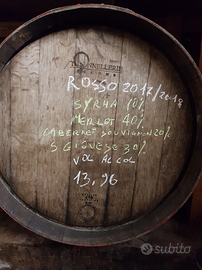 TONNELLERIE
ROSSO 2017/2018
SYRHA 10%
MERLOT 40%
CABERNET SOUVIGNON 20%
SGIOVESE 30%
VOL ALCOL
13,96
subito